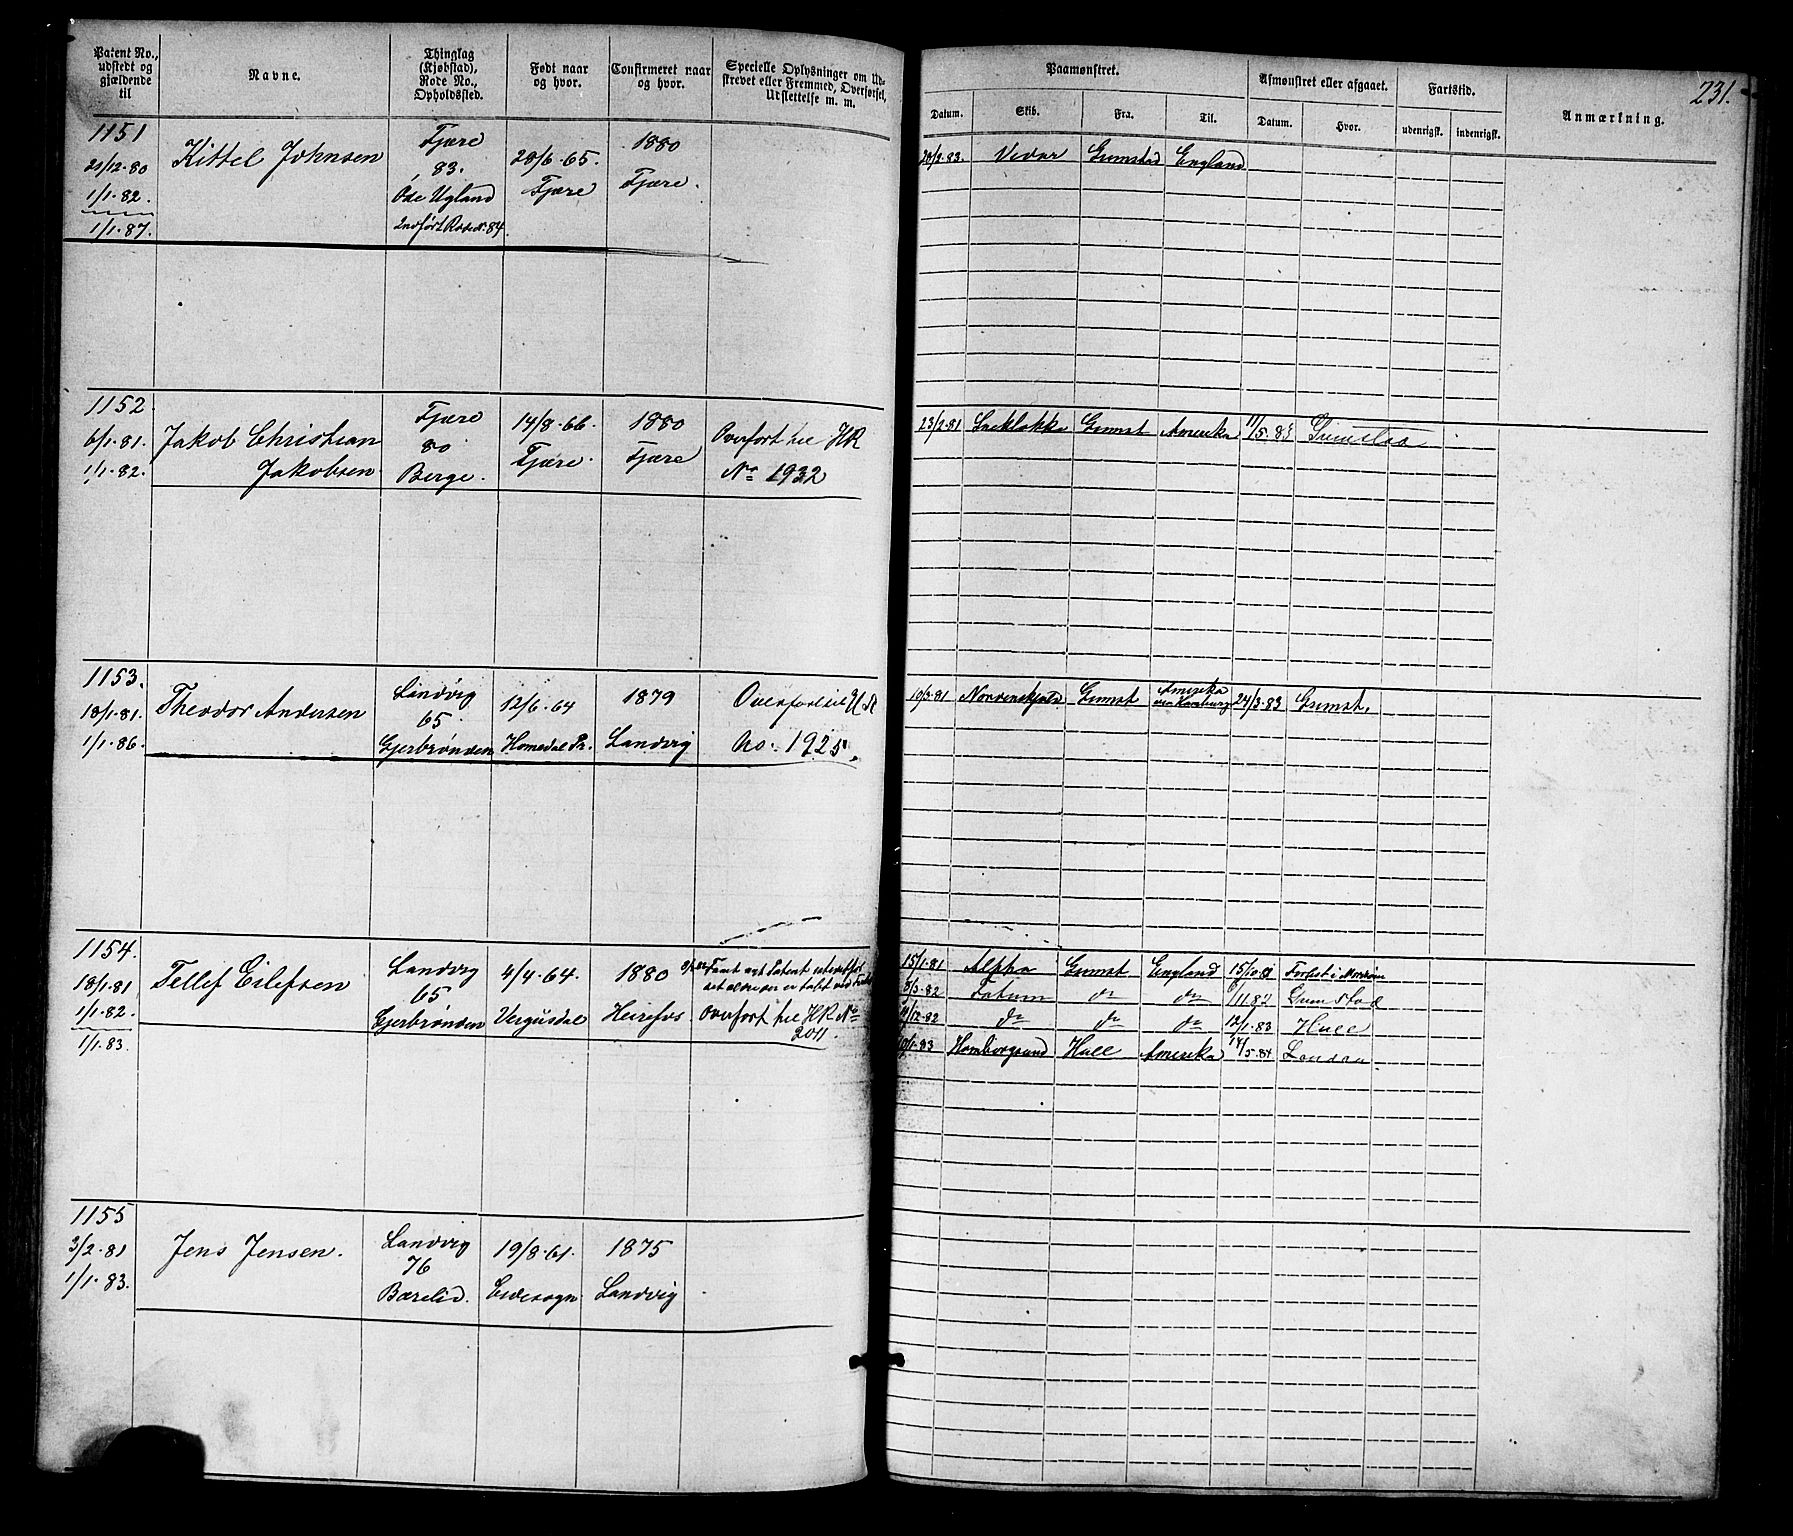 Patent No., udstedt og gjældende til
Navne.
Thinglag (Kjøbstad), Rode No., Opholdssted.
Født naar og hvor.
Confirmeret naar og hvor.
Specielle Oplysninger om Udskrevet eller Fremmed, Overførsel, Udslettelse m. m.
Paamønstret.
Datum.
Skib.
Fra.
Til.
Afmønstret eller afgaaet.
Datum.
Hvor.
Fartstid.
udenrigsk.
indenrigsk.
Anmærkning.
231.
1151
21/12-80
1/1-82.
1/1-87.
Kittel Johnsen
Fjære
83.
Ose Ugland
Indført Rode No. 84
28/6-65.
Fjære
1880
Fjære.
20/2-83. Vidar Grimstad England
1152
6/1-81.
1/1-82.
Jakob Christian
Jakobsen
Fjære
80
Berge.
14/8-66.
Fjære.
1880
Fjære
Overført til HR
No 1932
23/2-81 Grimst Amerika 11/5-83 Grimstad
1153.
18/1-81.
1/1-86.
Theodor Andersen
Landvig
65.
Gjerbrønden
12/6-64
Homedal Pr.
1879
Landvig
Overført til HR
No. 1925.
10/3-81 Grimst Amerika
24/3-83 Grimst.
1154.
18/1-81
1/1-82.
1/1-83.
Tellef Eilefsen
Landvig
65
Gjerbrønden
4/4-64.
Vegusdal
1880
Heirefos
Overført til HR No
2011.
15/1-81 Alpha Grimst England 15/10-81
8/3-82 Fatum do do 11-82 Grimstad
/12-82 do do do 12/1-83 Hull
/1-83 Homborgsund Hull Amerika 14/5-84 London
1155
3/2-81
1/1-83.
Jens Jensen.
Landvig
76
Bærelid.
19/8-61.
Eidesogn
1875
Landvig